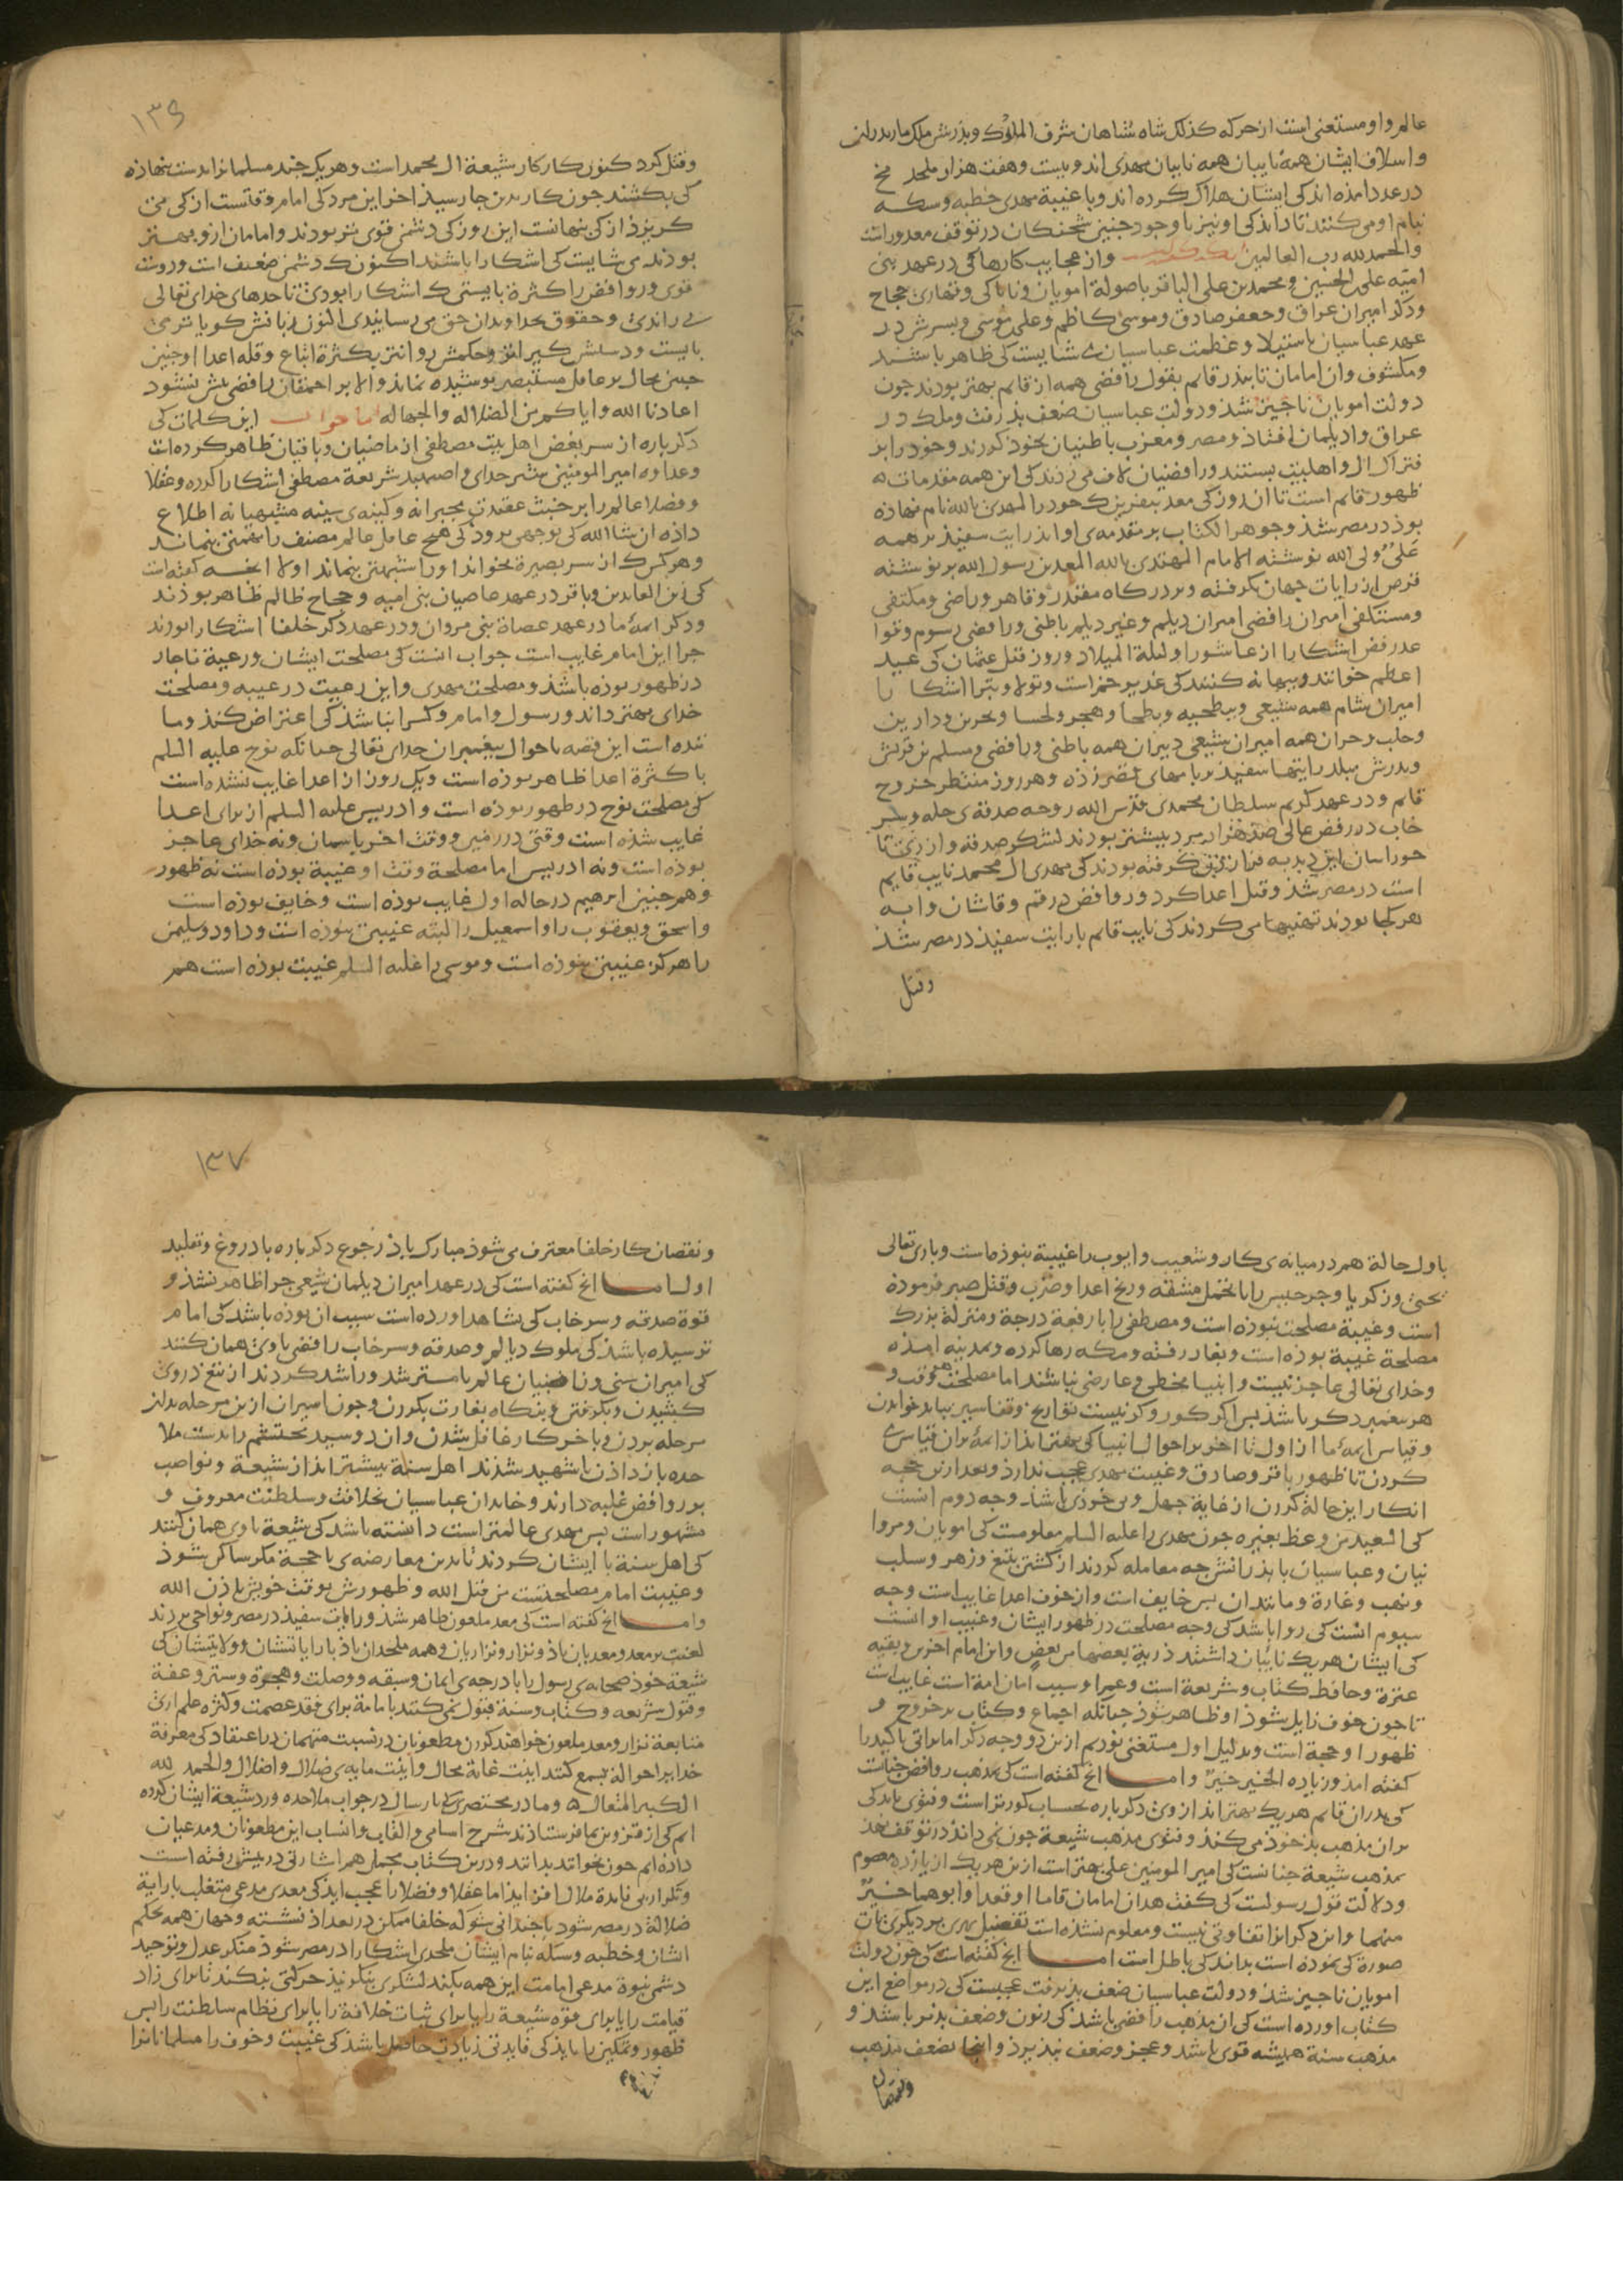 عالم و او مستغنی است از حرکه کذلک شاه شاهان شرف الملوک و بذرش ملک مازندران
و اسلاف ایشان همه نایبان همه نایبان مهدی اند و بیست و هفت هزار ملحد مخ
در عدد امده اند کی ایشان هلاک کرده اند و با غیبة مهدی خطبه و سکه
بنام او می کنند تا داند کی او نیز با وجود جنین شحنکان در توقف معدور است
والحمد لله رب العالمین و از عجایب کارها کی در عهد بنی
امیّه علی الحسین و محمد بن علی الباقر با صولة امویان و ناباکی و قهاری حجاج
و دکر امیران عراق و جعفر صادق و موسی کاظم و علی موسی و بسرش در
عهد عباسیان باستیلا و عظمت عباسیان می شایست کی ظاهر باشند
و مکشوف و ان امامان تا بدر قایم بقول رافضی همه از قایم بهتر بودند جون
دولت امویان ناجیز شد و دولت عباسیان ضعف بذرفت و ملک در
عراق وا دیلمان افتاذ و مصر و مغرب باطنیان بخوذ کردند و خود را بر
فتراک ال و اهل بیت بستند و رافضیان لاف می زدند کی این همه مقدمات
ظهور قایم است تا ان روز کی معد بنفرین ک خود را المهدی بالله نام نهاذه
بوذ در مصر شذ و جوهر الکتاب بر مقدمه ی او اند رایت سفیذ بر همه
علی ولی الله نوشته الامام المهتدی بالله المعد بن رسول الله بر نوشته
قرص ان رایات جهان بکرفته و بر درکاه مقتدر و قاهر و راضی و مکتفی
و مستکفی امیران رافضی امیران دیلم و غیر دیلم باطنی و رافضی رسوم و قوا
عد رفض اشکارا از عاشورا و لیلة المیلاد و روز قتل عثمان کی عید
اعظم خوانند و بهانه کنند کی غدیر خم است و تولا و تبرا اشکارا
امیران شام همه شیعی و بیطحیه و بطحا و هجر و لحسا و بحرین و دارین
و حلب و حران همه امیران شیعی دبیران همه باطنی و رافضی و مسلم بن قریش
و بدرش ببلد رایتها سفیذ و بامهای بقصر زده و هر روز منتظر خروج
قایم و در عهد کریم سلطان محمدی قدس الله روحه صدقه ی حله و سر
خاب در رفض عالی صذ هزار مرد بیشتر بودند لشکر صدقه و از ری تا
خوراسان این دبدبه کرفته بودند کی مهدی ال محمد نایب قایم
است در مصر شذ و قتل اعدا کرد و روافض در قم و قاشان و ابه
هر کجا بودند تهنیها می کردند کی نایب قایم با رایت سفیذ در مصر شذ
وقتل
۱۳۶
و قتل کرد کنون کار کار شیعة ال محمد است و هر یک جند مسلمانرا بدست بنهاذه
کی بکشند جون کار بدین جا رسیذ اخر این مردکی امام وقتست از کی می
کریزد از کی بنهانست این روز کی دشمن قوی تر بودند و امامان ازو بهتر
بودند می شایست کی اشکارا باشند اکنون ک دشمن ضعیف است و دوست
قوی و روافض را کثرة بایستی ک اشکارا بودی تا حدهای خدای تعالی
می راندی و حقوق بخداوندان حق می رسانیدی اکنون زبانش کویاتر می
بایست و دستش کیراتر و حکمش روانتر بکثرة اتباع و قله اعدا و جنین
جنین محال بر عاقل مستبصر بوشیده نماند والا بر احمقان رافضی کش نشنود
اعادنا الله و ایاکم من الضلاله والجهاله اما جواب این کلمات کی
دکرباره از سر بغض اهل بیت مصطفی از ماضیان و باقیان ظاهر کرده است
و عداوه امیر المومنین شیر خدای و اصهبد شریعة مصطفی اشکارا کرده و عقلا
و فضلا عالم را بر خبث عقیدت مجبرانه و کینه ی سینه مشبهیانه اطلاع
داذه ان شاالله کی بوجهی بروذ کی هیج عاقل عالم مصنف را تهمتی بنماند
و هر کس ک از سر بصیرة بخواند او را شبهتی بنماند اولا انجه کفته است
کی زین العابدین و باقر در عهد عاصیان بنی امیه و حجاج ظالم ظاهر بوذند
و دکر ایمهٔ ما در عهد عصاة بنی مروان و در عهد دکر خلفا اشکارا بودند
جرا این امام غایب است جواب انست کی مصلحت ایشان و رعیة ناجار
در ظهور بوذه باشذ و مصلحت مهدی و این رعیت در غیبه و مصلحت
خدای بهتر داند و رسول و امام و کس را نباشذ کی اعتراض کند و ما
ننده است این قصه باحوال بیغمبران خدای تعالی جنانکه نوح علیه السلم
با کثرة اعدا ظاهر بوذه است و یک روز از اعدا غایب نشده است
کی مصلحت نوح در ظهور بوذه است و ادریس علیه السلم از برای اعدا
غایب شذه است وقتی در زمین و وقت اخر باسمان و نه خدای عاجز
بوذه است و نه ادریس اما مصلحة وقت او غیبة بوذه است نه ظهور
و همجنین ابرهیم در حاله اول غایب بوذه است و خایف بوذه است
و اسحق و یعقوب را و اسمعیل را البته غیبتی نبوذه است و داود و سلیمن
را هرکز غیبتی نبوذه است و موسی را علیه السلم غیبت بوذه است هم
باول حالة هم در میانه ی کار و شعیب و ایوب را غیبة نبوذه است و باری تعالی
یحیی و زکریا و جرجیس را با تحمل مشقه و رنج اعدا و ضرب و قتل صبر فرموذه
است و غیبة مصلحت نبوذه است و مصطفی را با رفعة درجة و منزلة بزرک
مصلحة غیبة بوذه است و بغار رفته و مکه رها کرده و بمدینه امذه
و خدای تعالی عاجز نیست و انبیا مخطی و عارضی نباشند اما مصلحت وقت و
هر بیغمبر دکر باشذ بس اکر کور و کر نیست تواریخ و تفاسیر بباید خواندن
و قیاس ایمهٔ ما از اول تا اخر بر احوال انبیا کی بهتر اند از ایمه بران قیاس
کردن تا ظهور باقر و صادق و غیبت مهدی عجب ندارذ و بعد ازین حجه
انکار این حالة کردن از غایة جهل و بی خوذی باشذ وجه دوم انست
کی السعید من وعظ بغیره جون مهدی را علیه السلم معلومست کی امویان و مروا
نیان و عباسیان با بذرانش جه معامله کردند از کشتن بتیغ و زهر و سلب
و نهب و غارة و مانند ان بس خایف است و از خوف اعدا غایب است وجه
سیوم انست کی روا باشد کی وجه مصلحت در ظهور ایشان و غیبت او انست
کی ایشان هر یک نایبان داشتند ذریة بعضها من بعض و این امام اخرین و بقیه
عترة و حافظ کتاب و شریعة است و عمر او سبب امان امة است غایب است
تا جون خوف زایل شوذ او ظاهر شوذ جنانکه اجماع و کتاب بر خروج و
ظهور او حجة است و بدلیل اول مستغنی بودیم ازین دو وجه دکر اما براتی تاکید را
کفته امد و زیاده الخیر خیر و اما انج کفته است کی بمذهب روافض جنانست
کی بدران قایم هر یک بهتر اند از وی دکرباره بحساب کورتر است و فتوی باید کی
بران مذهب بذ خوذ می کنذ و فتوی مذهب شیعة جون نمی داند در توقف نهد
بمذهب شیعة جنانست کی امیر المومنین علی بهتر است ازین هر یک از یازده معصوم
و دلالت قول رسولست کی کفت هدان امامان قاما او قعدا و ابوهما خیر
منهما و این دکر انرا تفاوتی نیست و معلوم نشذه است تفضیل یکی بر دیکری بهان
صورة کی نموده است بداند کی باطل است اما انج کفته است کی جون دولت
امویان ناجیز شذ و دولت عباسیان ضعف بذیرفت عجبست کی در مواضع این
کتاب اورده است کی ان مذهب رافضی باشذ کی زبون و ضعف بذیر باشذ و
مذهب سنة همیشه قوی باشد و عجز و ضعف نبذیرذ و اینجا بضعف مذهب
و نقصان
۱۳۷
و نقصان کار خلفا معترف می شوذ مبارک باذ رجوع دکرباره با دروغ و تقلید
اول اما انج کفته است کی در عهد امیران دیلمان شیعی جرا ظاهر نشذ و
قوة صدقه و سرخاب کی بشاهد اورده است سبب ان بوذه باشذ کی امام
ترسیده باشذ کی ملوک دیالم و صدقه و سرخاب رافضی با وی همان کنند
کی امیران سنی و نا عالم با مسترشد و راشد کردند از تیغ در وی
کشیدن و بکرفتن و بنکاه بغارت بکردن و جون اسیران ازین مرحله بدان
مرحله بردن و باخر کار غافل شدن و ان دو سید محتشم را بدست ملا
حده باز داذن تا شهید شدند اهل سنة بیشتر اند از شیعة و نواصب
بر روافض غلبه دارند و خاندان عباسیان بخلافت و سلطنت معروف و
مشهور است بس مهدی عالمتر است دانسته باشد کی شیعة با وی همان کنند
کی اهل سنة با ایشان کردند تا بدین معارضه ی با حجة مکر ساکن شوذ
و غیبت امام مصلحتیست من قبل الله و ظهورش بوقت خویش باذن الله
و اما انج کفته است کی معد ملعون ظاهر شذ و رایات سفیذ در مصر و نواحی بردند
لعنت بر معد و معدیان باذ و نزار و نزاریان و همه ملحدان باذ با رایاتشان و ولایتشان کی
شیعة خوذ صحابه ی رسول را با درجه ی ایمان و سبقه و وصلت و هجرة و ستر و عفة
و قبول شریعه و کتاب و سنة قبول نمی کنند بامامة برای فقد عصمت و کثره علم اری
متابعة نزار و معد ملعون خواهند کردن مطعونان در نسبت متهمان در اعتقاد کی معرفة
خدا برا حوالة بسمع کنند اینت غایة محال و اینت مایه ی ضلال و اضلال و الحمد لله
الکبیر المتعال و ما در مختصری کی بارسال در جواب ملاحده و رد شیعة ایشان کرده
ایم کی از قزوین بما فرستاذند شرح اسامی و القاب و انساب این مطعونان و مدعیان
داده ایم جون بخوانند بدانند و درین کتاب مجمل هم اشارتی در بیش رفته است
و تکرار بی فایدة ملال افزاید اما عقلا و فضلا را عجب اید کی معدی مدعی متغلب با رایة
ضلالة در مصر شود با جندانی شوله خلفا ممکن در بغداذ نشسته و جهان همه بحکم
ایشان و خطبه و سکه بنام ایشان ملحدی اشکارا در مصر شوذ منکر عدل و توحید
دشمن نبوة مدعی امامت این همه بکند لشکری بنکونیذ حرکتی نبکند تا برای زاد
قیامت را یا برای قوه شیعة را یا برای ثبات خلافة را یا برای نظام سلطنت را بس
ظهور و تمکین را بایذ کی فایدتی زیادتی حاصل باشذ کی غیبت و خوف را مسلمانانرا